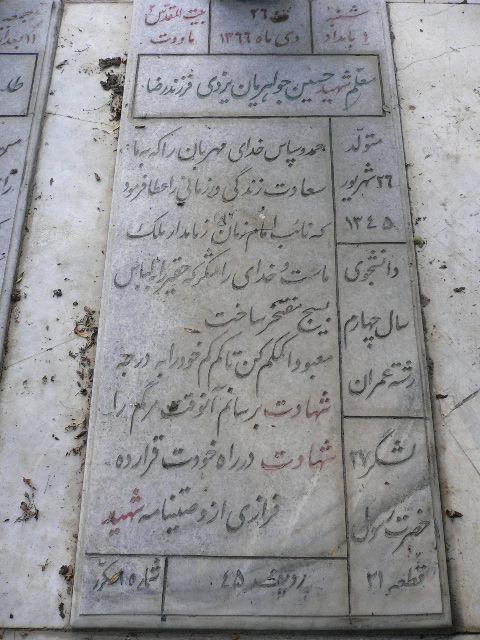 شنبه
۱ بامداد
۲۶
دی ماه ۱۳۶۶
بیت المقدس ۲
ماووت
معلم شهید حسین جواهریان یزدی فرزند رضا
متولد
۲۶ شهریور
۱۳۴۵
دانشجوی
سال چهارم
رشته عمران
لشگر ۲۷
حضرت رسول
قطعه ۲۱
حمد و سپاس خدای مهربان را که به ما
سعادت زندگی در زمانی را عطا فرمود
که نائب امام زمان زمامدار ملک
ماست و خدای را شکر که حقیر را به لباس
بسیج مفتخر ساخت
معبودا کمکم کن تا کم کم خود را به درجه
شهادت برسانم آنوقت مرگم را
شهادت در راه خودت قرار ده
فرازی از وصیتنامه شهید
ردیف ۴۵
شماره ۱۵ مکرر